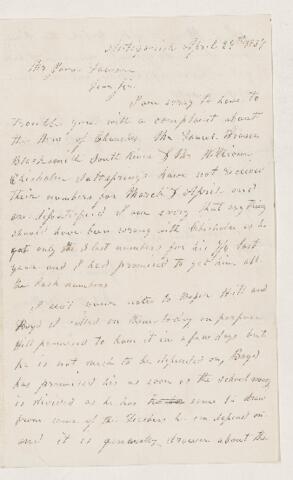 Antigonish April 29th 1837
Mr James Dawson
Dear Sir,
I am sorry to have to
trouble you with a complaint about
the Hind of Churches. Mr James Fraser
Blacksmith South River & Mr William
Chisholm Saltsprings have not received
their numbers for March & April and
are dissatisfied I am sorry that anything
should have been wrong with Chisholm as he
got only the 3 last numbers for his 7/6 last
year and I had promised to get him all
the back numbers
I sent your notes to Hill and
Boyd I called on them today on purpose
Hill promised to have it in a few days but
he is not much to be depended on, Boyd
has promised his as soon as the school money
is divided as he has some to draw
from some of the Teachers he can depend on
and it is generally drawn about the